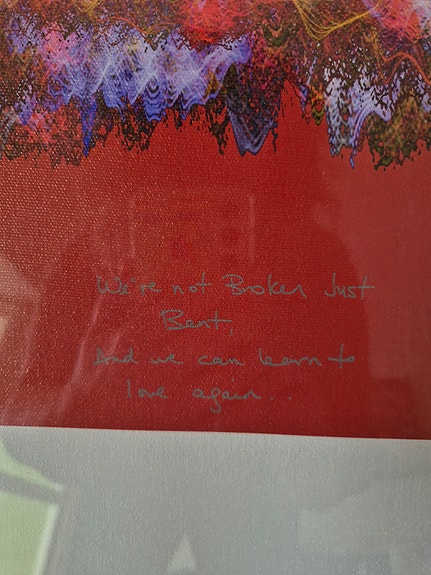 We're not Broken Just
Bent,
And we can learn to
love again...